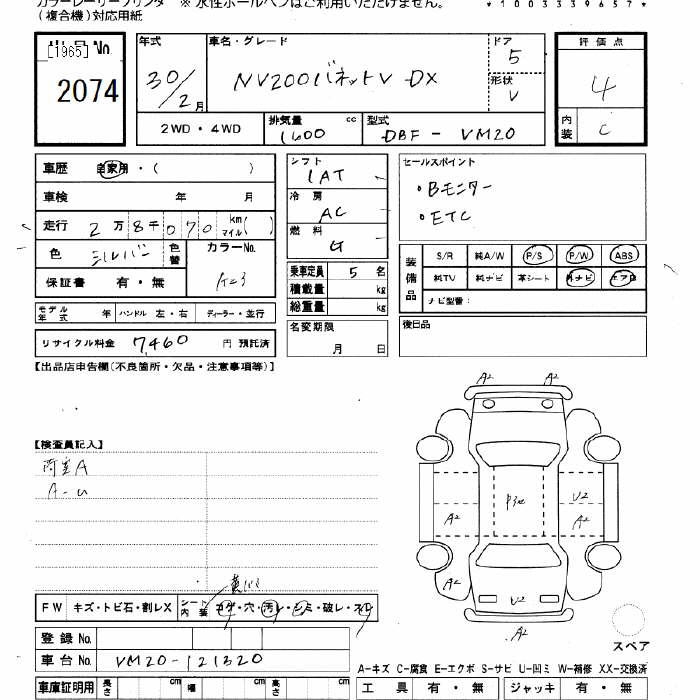 カラーレーザープリンタ ※ 水性ボールペンはご利用いただけません。
(複合機)対応用紙
*1003339657*
[1965] No
2074
年式
30/2月
車名・グレード
NV200バネットV DX
ドア
5
形状
V
2WD・4WD
排気量 cc
1600
型式
DBF-VM20
評価点
4
内装
C
車歴 自家用・( )
車検 年 月
走行 2万8千070 km マイル( )
色 シルバー 色替
カラーNo.
K23
保証書 有・無
モデル年式 年 ハンドル 左・右 ディーラー・並行
リサイクル料金 7,460 円 預託済
シフト
1AT
冷房
AC
燃料
G
乗車定員 5 名
積載量 kg
総重量 kg
名変期限
月 日
セールスポイント
・Bモニター
・ETC
装備品
S/R 純A/W P/S P/W ABS
純TV 純ナビ 革シート 外ナビ エアB
ナビ型番:
後日品
【出品店申告欄(不良箇所・欠品・注意事項等)】
【検査員記入】
荷室A
A-U
A2 A2
A2 U2
A2
A2
U2
A2
FW キズ・トビ石・割レX シート内装 コゲ・穴・汚レ・シミ・破レ・スレ
登録No.
車台No. VM20-121320
車庫証明用 長さ cm 幅 cm 高さ cm
スペア
A-キズ C-腐食 E-エクボ S-サビ U-凹ミ W-補修 XX-交換済
工具 有・無 ジャッキ 有・無